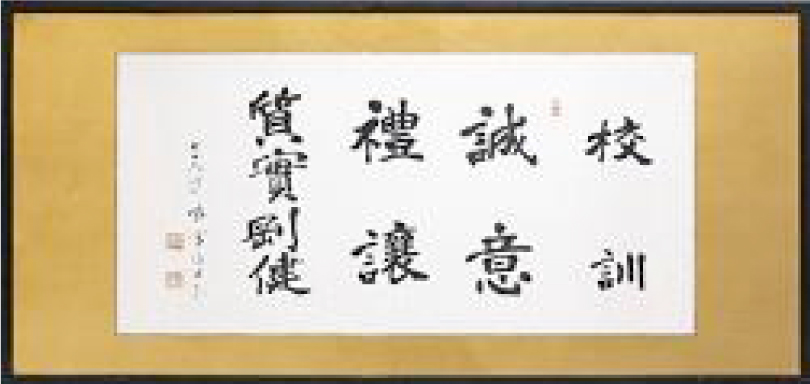 校訓
誠意
禮讓
質實剛健